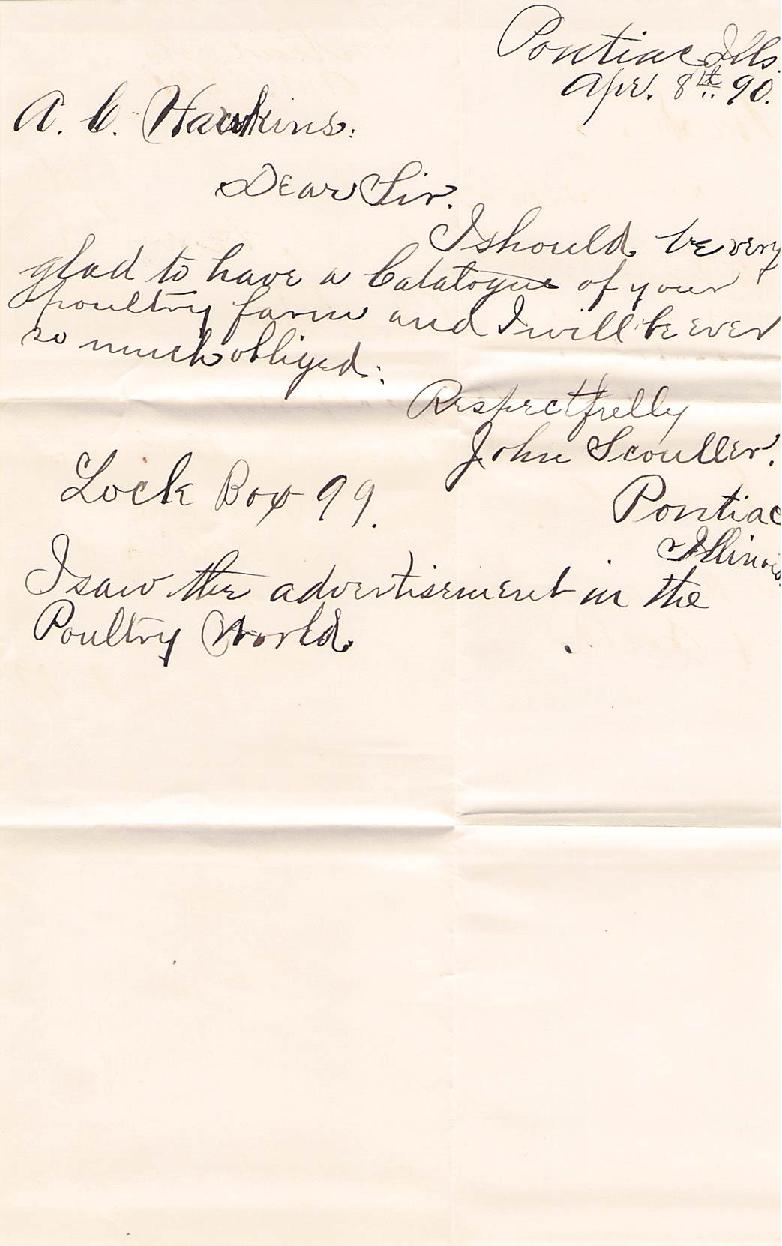 Pontiac Ills.
Apr. 8th. 90.
A. C. Hawkins.
Dear Sir.
I should be very
glad to have a Catalogue of your
poultry farm and I will be ever
so much obliged.
Respectfully
John Scouller.
Lock Box 99.
Pontiac
Illinois
I saw the advertisement in the
Poultry World.